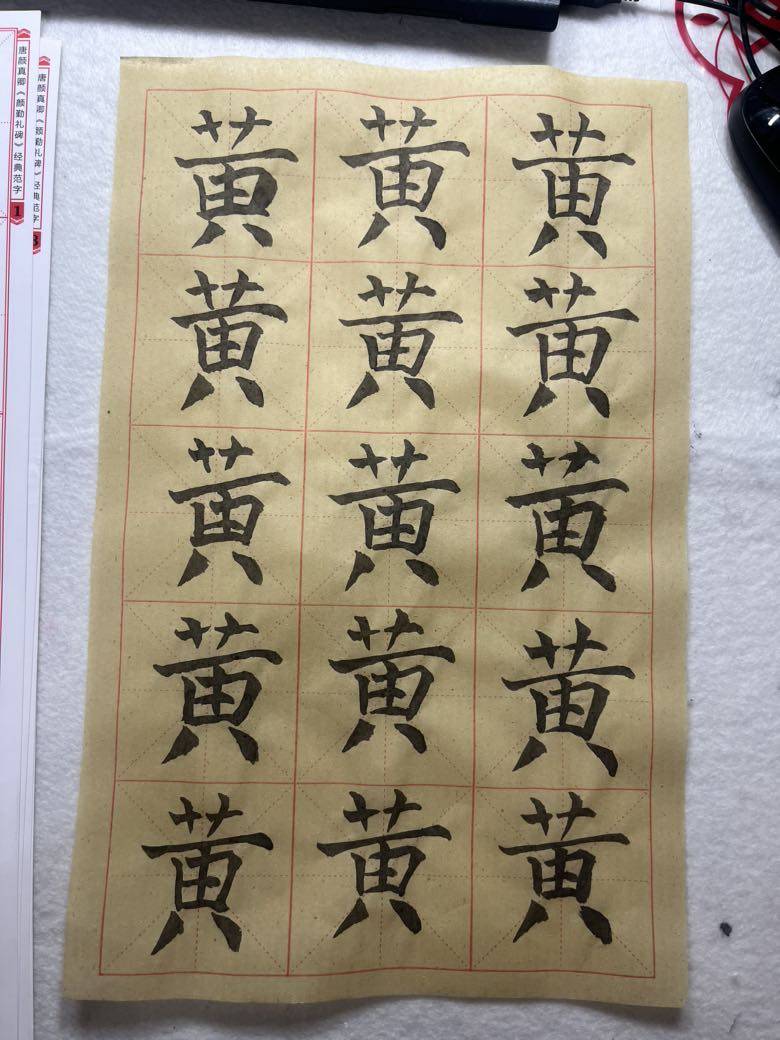 黄黄黄
黄黄黄
黄黄黄
黄黄黄
黄黄黄
唐颜真卿《颜勤礼碑》经典范字
1
唐颜真卿《颜勤礼碑》经典范字
3